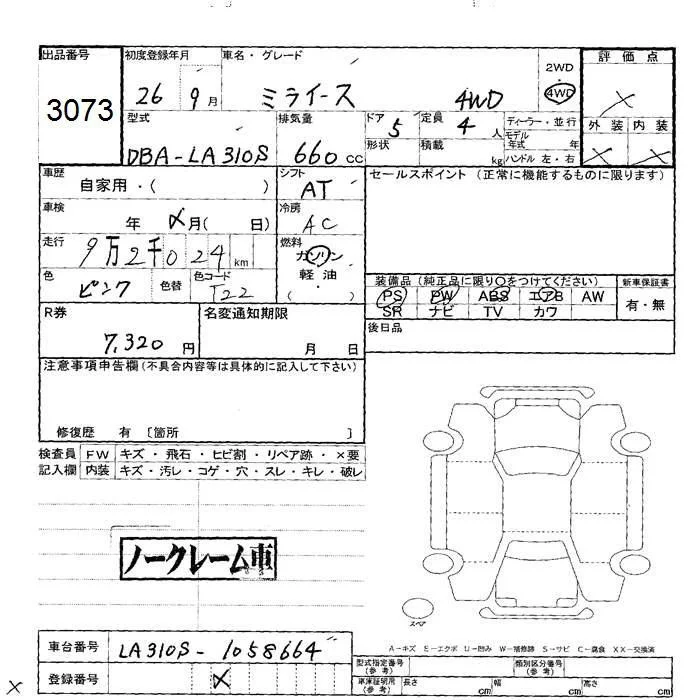 出品番号
3073
初度登録年月
26 9月
車名・グレード
ミライース 4WD
2WD
・
4WD
評価点
×
外装 内装
× ×
型式
DBA-LA310S
排気量
660cc
ドア
5
定員
4人
ディーラー・並行
モデル年式 年
形状
積載 kg
ハンドル 左・右
車歴
自家用・( )
シフト
AT
セールスポイント (正常に機能するものに限ります)
車検
年 メ月( 日)
冷房
AC
走行
9万2千024km
燃料
ガソリン
軽油・
( )
色
ピンク
色替
色コード
T22
装備品(純正品に限り○をつけてください)
PS PW ABS エアB AW
SR ナビ TV カワ
新車保証書
有・無
R券
7,320円
名変通知期限
月 日
後日品
注意事項申告欄(不具合内容等は具体的に記入して下さい)
修復歴 有 〔箇所 〕
検査員記入欄
FW キズ・飛石・ヒビ割・リペア跡・×要
内装 キズ・汚レ・コゲ・穴・スレ・キレ・破レ
ノークレーム車
スペア
A-キズ E-エクボ U-凹み W-補修跡 S-サビ C-腐食 XX-交換済
車台番号
LA310S-1058664
登録番号
×
型式指定番号(参考)
類別区分番号(参考)
車庫証明用(参考)
長さ cm 幅 cm 高さ cm
×